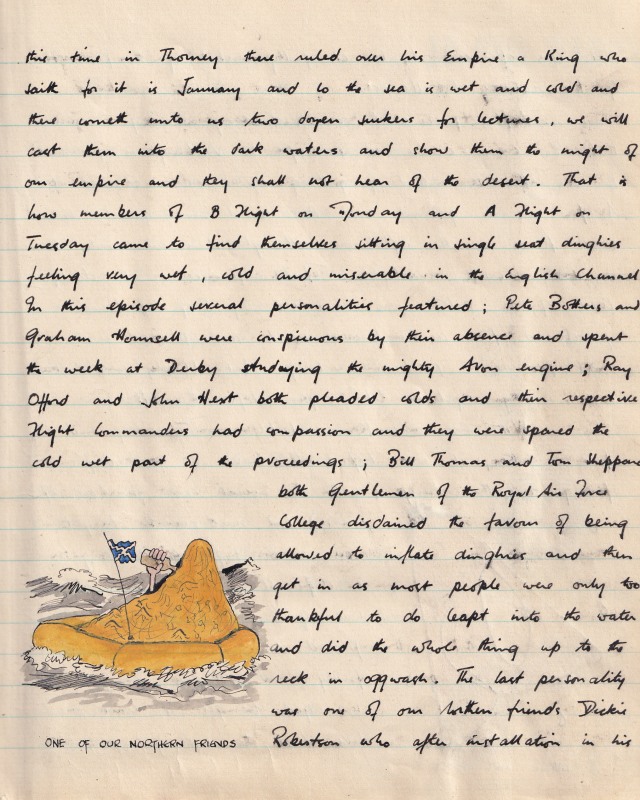 this time in Thorney there ruled over his Empire a King who
saith for it is January and lo the sea is wet and cold and
there cometh unto us two doyen suckers for lectures, we will
cast them into the dark waters and show them the might of
our empire and they shall not hear of the desert. That is
how members of B Flight on Monday and A Flight on
Tuesday came to find themselves sitting in single seat dinghies
feeling very wet, cold and miserable in the English Channel
In this episode several personalities featured; Pete Bothers and
Graham Hounsell were conspicuous by their absence and spent
the week at Derby studying the mighty Avon engine; Ray
Offord and John Hext both pleaded colds and their respective
Flight Commanders had compassion and they were spared the
cold wet part of the proceedings; Bill Thomas and Tom Sheppard
both Gentlemen of the Royal Air Force
College disdained the favour of being
allowed to inflate dinghies and then
get in as most people were only too
thankful to do leapt into the water
and did the whole thing up to the
neck in oggwash. The last personality
was one of our northern friends Dickie
Robertson who after installation in his
ONE OF OUR NORTHERN FRIENDS